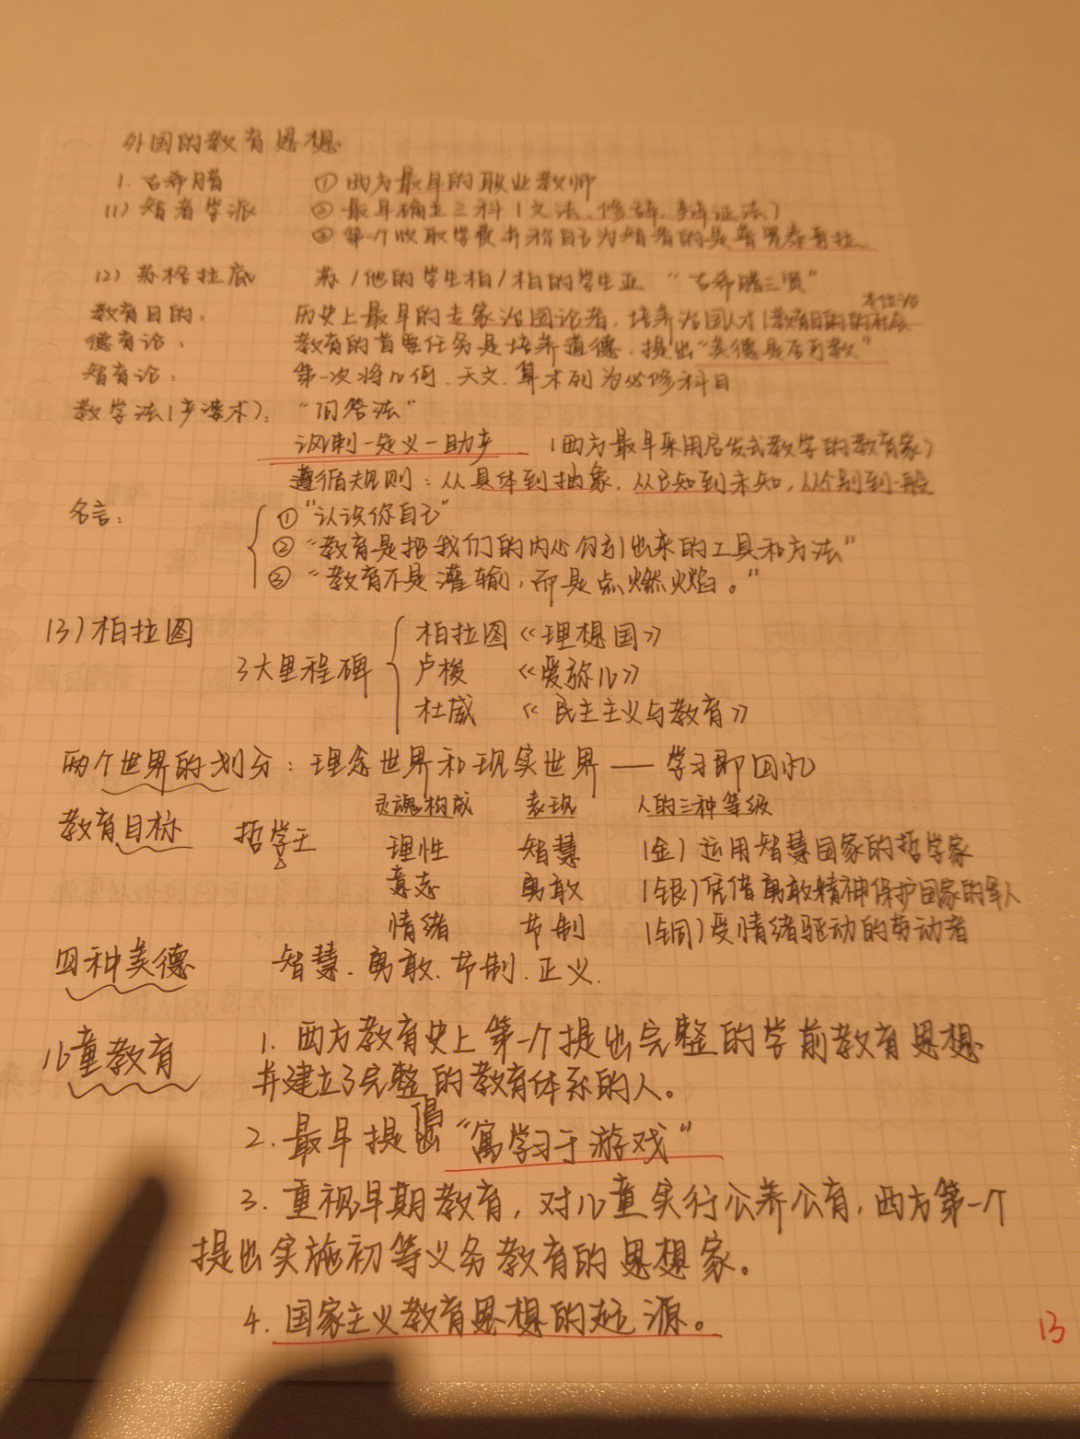 外国的教育思想
1. 古希腊 ① 西方最早的职业教师
(1) 智者学派 ② 最早确立三科(文法、修辞、辩证法)
③ 第一个收取学费并称自己为智者的是普罗泰哥拉
(2) 苏格拉底 苏/他的学生柏/柏的学生亚 “古希腊三贤”
本位论
教育目的: 历史上最早的专家治国论者,培养治国人才(教育目的的社会
德育论: 教育的首要任务是培养道德,提出“美德是否可教”
智育论: 第一次将几何、天文、算术列为必修科目
教学法(产婆术): “问答法”
讽刺—定义—助产 (西方最早采用启发式教学的教育家)
遵循规则:从具体到抽象,从已知到未知,从个别到一般
名言: ① “认识你自己”
② “教育是把我们的内心勾引出来的工具和方法”
③ “教育不是灌输,而是点燃火焰。”
(3) 柏拉图
3大里程碑 柏拉图《理想国》
卢梭 《爱弥儿》
杜威 《民主主义与教育》
两个世界的划分:理念世界和现实世界——学习即回忆
灵魂构成 表现 人的三种等级
教育目标 哲学王 理性 智慧 (金)运用智慧国家的哲学家
意志 勇敢 (银)凭借勇敢精神保护国家的军人
情绪 节制 (铜)受情绪驱动的劳动者
四种美德 智慧、勇敢、节制、正义.
儿童教育 1. 西方教育史上第一个提出完整的学前教育思想
并建立了完整的教育体系的人。
2. 最早提倡“寓学习于游戏”
3. 重视早期教育,对儿童实行公养公育,西方第一个
提出实施初等义务教育的思想家。
4. 国家主义教育思想的起源。
13